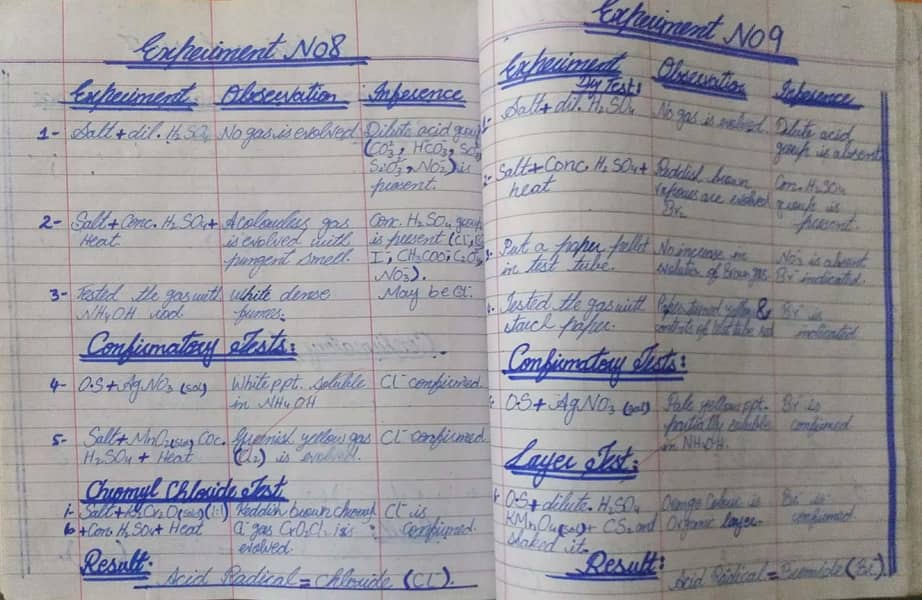 Experiment No8
Experiment Observation Inference
1- Salt + dil. H2SO4 No gas is evolved Dilute acid group
(CO3, HCO3, SO3
NO2) is
present.
2- Salt + Conc. H2SO4 + A colourless gas Conc. H2SO4 group
Heat is evolved with is present (Cl,
pungent smell. I, CH3COO,
NO3).
3- Tested the gas with white dense May be Cl.
NH4OH rod fumes.
Confirmatory Tests:
4- O.S + AgNO3 (sol) White ppt. soluble Cl- confirmed.
in NH4OH
5- Salt + MnO2 Coc. Greenish yellow gas Cl- confirmed.
H2SO4 + Heat (Cl2) is evolved.
Chromyl Chloride Test
Salt + (1:1) Reddish brown Cl- is
6 + Con. H2SO4 + Heat gas CrO2Cl2 is confirmed.
evolved.
Result:
Acid Radical = Chloride (Cl-).
Experiment No9
Experiment Observation Inference
Dry Test:
1- Salt + dil. H2SO4 No gas is evolved. Dilute acid
group is absent.
2- Salt + Conc. H2SO4 + Reddish brown Con. H2SO4
heat vapours are evolved group is
Br2 present.
3- Put a paper pellet No increase in NO3 is absent
in test tube. evolution of Brown gas. Br- indicated.
4. Tested the gas with Paper turned yellow & Br- is
starch paper. contents of test tube red indicated.
Confirmatory Tests:
O.S + AgNO3 (sol) Pale yellow ppt. Br- is
partially soluble confirmed
in NH4OH.
Layer Test:
O.S + dilute H2SO4 Orange Colour is Br- is
KMnO4 (sol) + CS2 and Organic layer. confirmed
shaked it.
Result:
Acid Radical = Bromide (Br-).